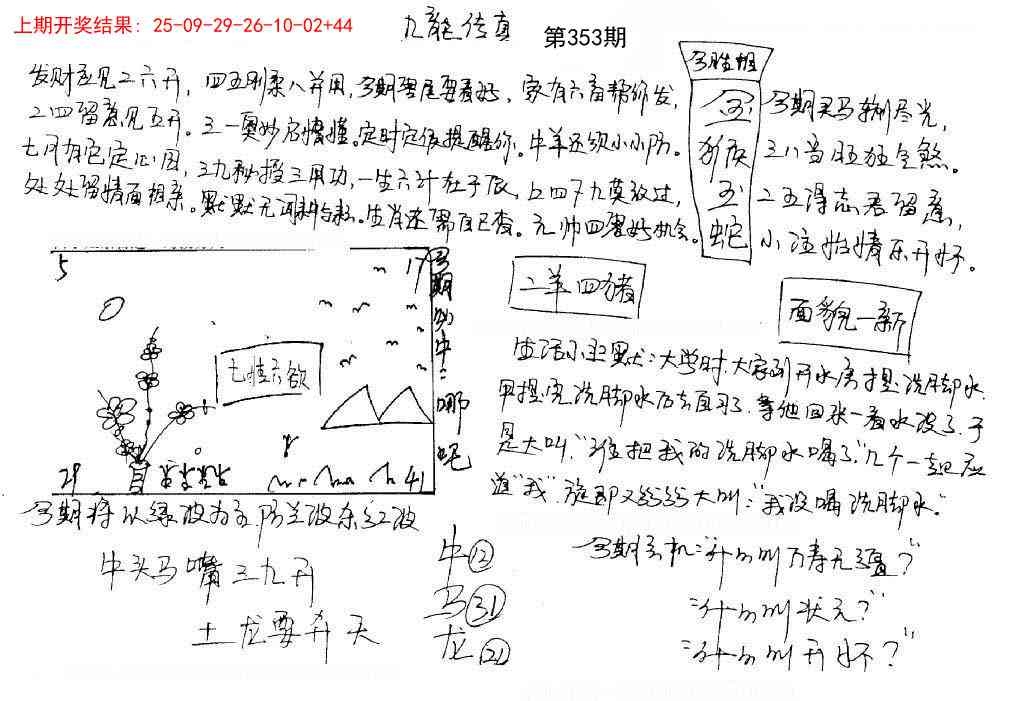 上期开奖结果：25-09-29-26-10-02+44
九龍传真 第353期
今期
金
猴
玉
蛇
发财还见二六开，四五刚柔八并用，今期双尾要看好，家有六畜帮你发，
二四留意见五开。三一奥妙启懂。定时定位提醒你。牛羊还须小心防。
七月有定，三九秘授三用功，一生六计在于辰，四九莫放过，
处处留情面相亲。默默无。生肖还需自己查。元帅四机会。
今期买马输尽光，
三八当旺狂全煞。
二五得志君留意，
小注怡情乐开怀。
5
17
七情六欲
29
41
今期外中：哪吒
二羊四猪
面貌一新
生活小幽默：大学时，大家到开水房提洗脚水，
甲提完洗脚水后去自习了，等他回来一看水没了，于
是大叫，“谁把我的洗脚水喝了”，几个一起应
道“我”，旋即又纷纷大叫：“我没喝洗脚水。”
今期将以绿波为主，防兰波杀红波
牛头马嘴三九开
土龙要升天
牛⑫
马㉛
龙㉑
今期玄机：“什么叫万寿无疆？”
“什么叫状元？”
“什么叫开怀？”